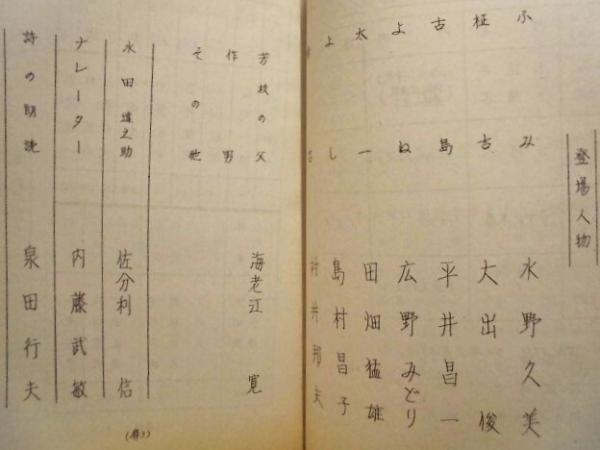 登場人物
ふみ 水野久美
柾吉 大出俊
古島 平井昌一
よね 広野みどり
太一 田畑猛雄
よし 島村昌子
村井邦夫
芳枝の父 海老江寛
作男
その他
水田 佐分利信
ナレーター 内藤武敏
詩の朗読 泉田行夫